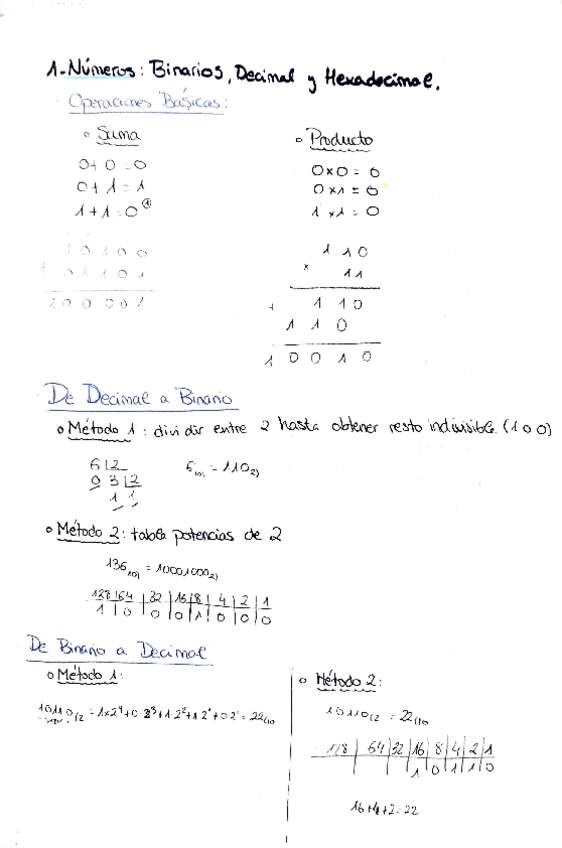 1-Números: Binarios, Decimal y Hexadecimal.
Operaciones Básicas:
o Suma
0+ 0 = 0
0+ 1 = 1
1+1=0 ①
10100
+ 01101
100001
o Producto
0x0 = 0
0x1 = 0
1 x1 = 0
110
x 11
+ 110
110
10010
De Decimal a Binario
o Método 1: dividir entre 2 hasta obtener resto indivisible (1 o 0)
6 |2
0 3 |2
1 1
6 10) = 110 2)
o Método 2: tabla potencias de 2
136 10) = 10001000 2)
128|64|32|16|8|4|2|1
1|0|0|0|1|0|0|0
De Binario a Decimal
o Método 1:
10110 (2 = 1x2⁴+0·2³+1·2²+1·2¹+0·2⁰ = 22 (10
o Método 2:
10110 (2 = 22 (10
128|64|32|16|8|4|2|1
1|0|1|1|0
16+4+2=22